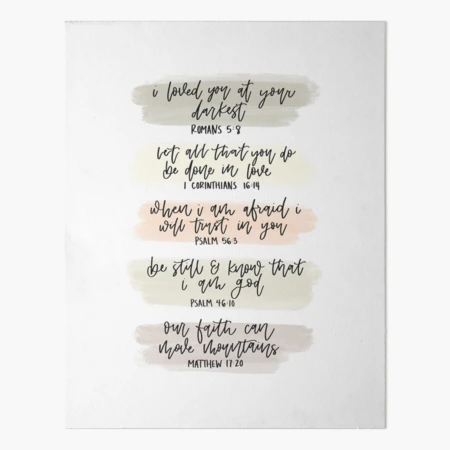 i loved you at your
darkest
ROMANS 5:8
let all that you do
be done in love
1 CORINTHIANS 16:14
when i am afraid i
will trust in you
PSALM 56:3
be still & know that
i am god
PSALM 46:10
our faith can
move mountains
MATTHEW 17:20